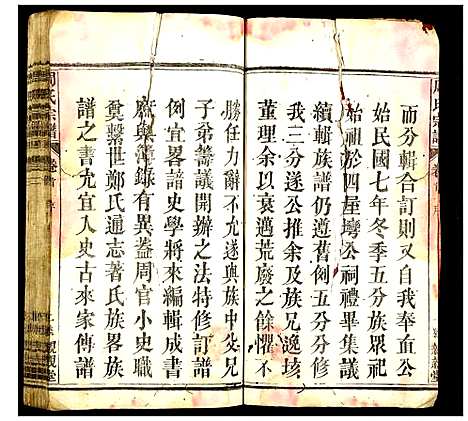 而分輯合訂則又自我奉血公
始民國七年冬季五分族眾祀
始祖於四屋塆公祠禮畢集議
續輯族譜仍遵舊例五分分修
我三分遂公推余及族兄逸垓
董理余以襄邁荒廢之餘懼不
勝任力辭不允遂與族中父兄
子弟籌議開辦之法特修訂譜
例宜畧譜史學將來編輯成書
庶與簿錄有異蓋周官小史職
奠繫世鄭氏通志著氏族畧族
譜之書允宜入史古來家傳譜
周氏宗譜
卷首
序
二